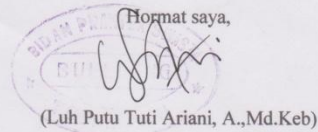 Hormat saya,
BIDAN
(Luh Putu Tuti Ariani, A.,Md.Keb)